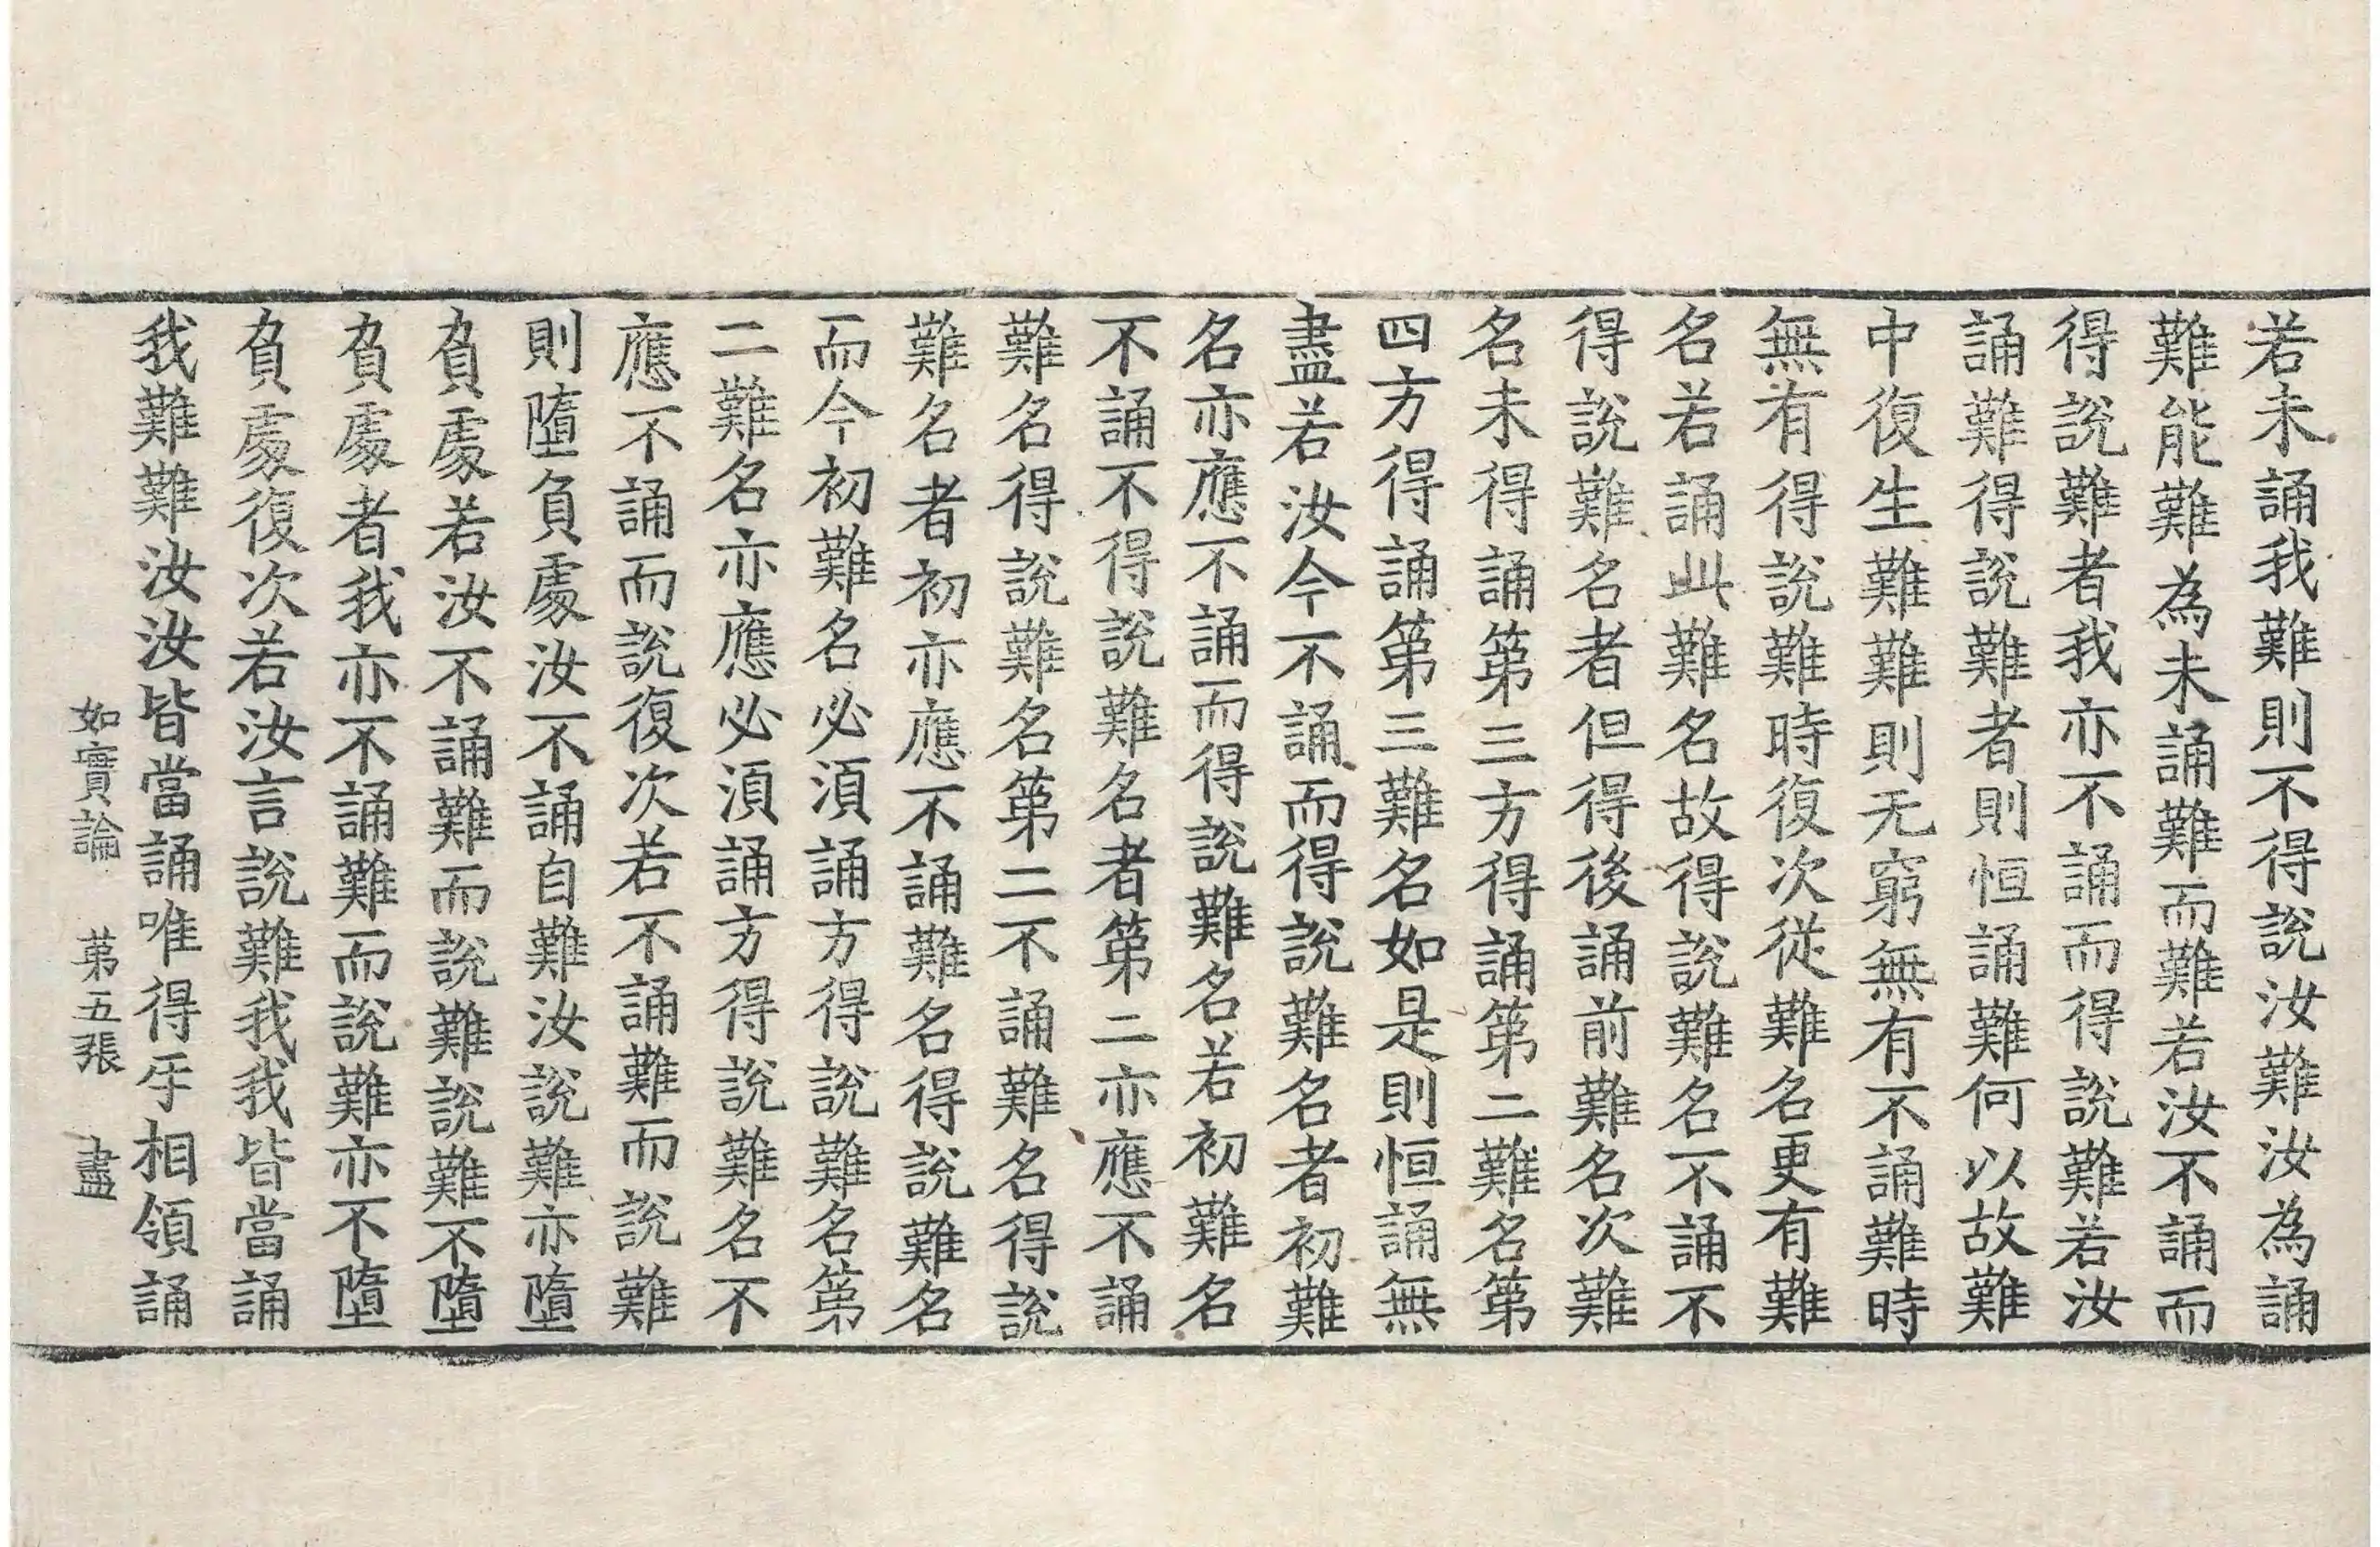 若未誦我難則不得說汝難汝為誦
難能難為未誦難而難若汝不誦而
得說難者我亦不誦而得說難若汝
誦難得說難者則恒誦難何以故難
中復生難難則无窮無有不誦難時
無有得說難時復次從難名更有難
名若誦此難名故得說難名不誦不
得說難名者但得後誦前難名次難
名未得誦第三方得誦第二難名第
四方得誦第三難名如是則恒誦無
盡若汝今不誦而得說難名者初難
名亦應不誦而得說難名若初難名
不誦不得說難名者第二亦應不誦
難名得說難名第二不誦難名得說
難名者初亦應不誦難名得說難名
而今初難名必須誦方得說難名第
二難名亦應必須誦方得說難名不
應不誦而說復次若不誦難而說難
則墮負處汝不誦自難汝說難亦墮
負處若汝不誦難而說難說難不墮
負處者我亦不誦難而說難亦不墮
負處復次若汝言說難我我皆當誦
我難難汝汝皆當誦唯得𤓰相領誦
如實論 第五張 盡